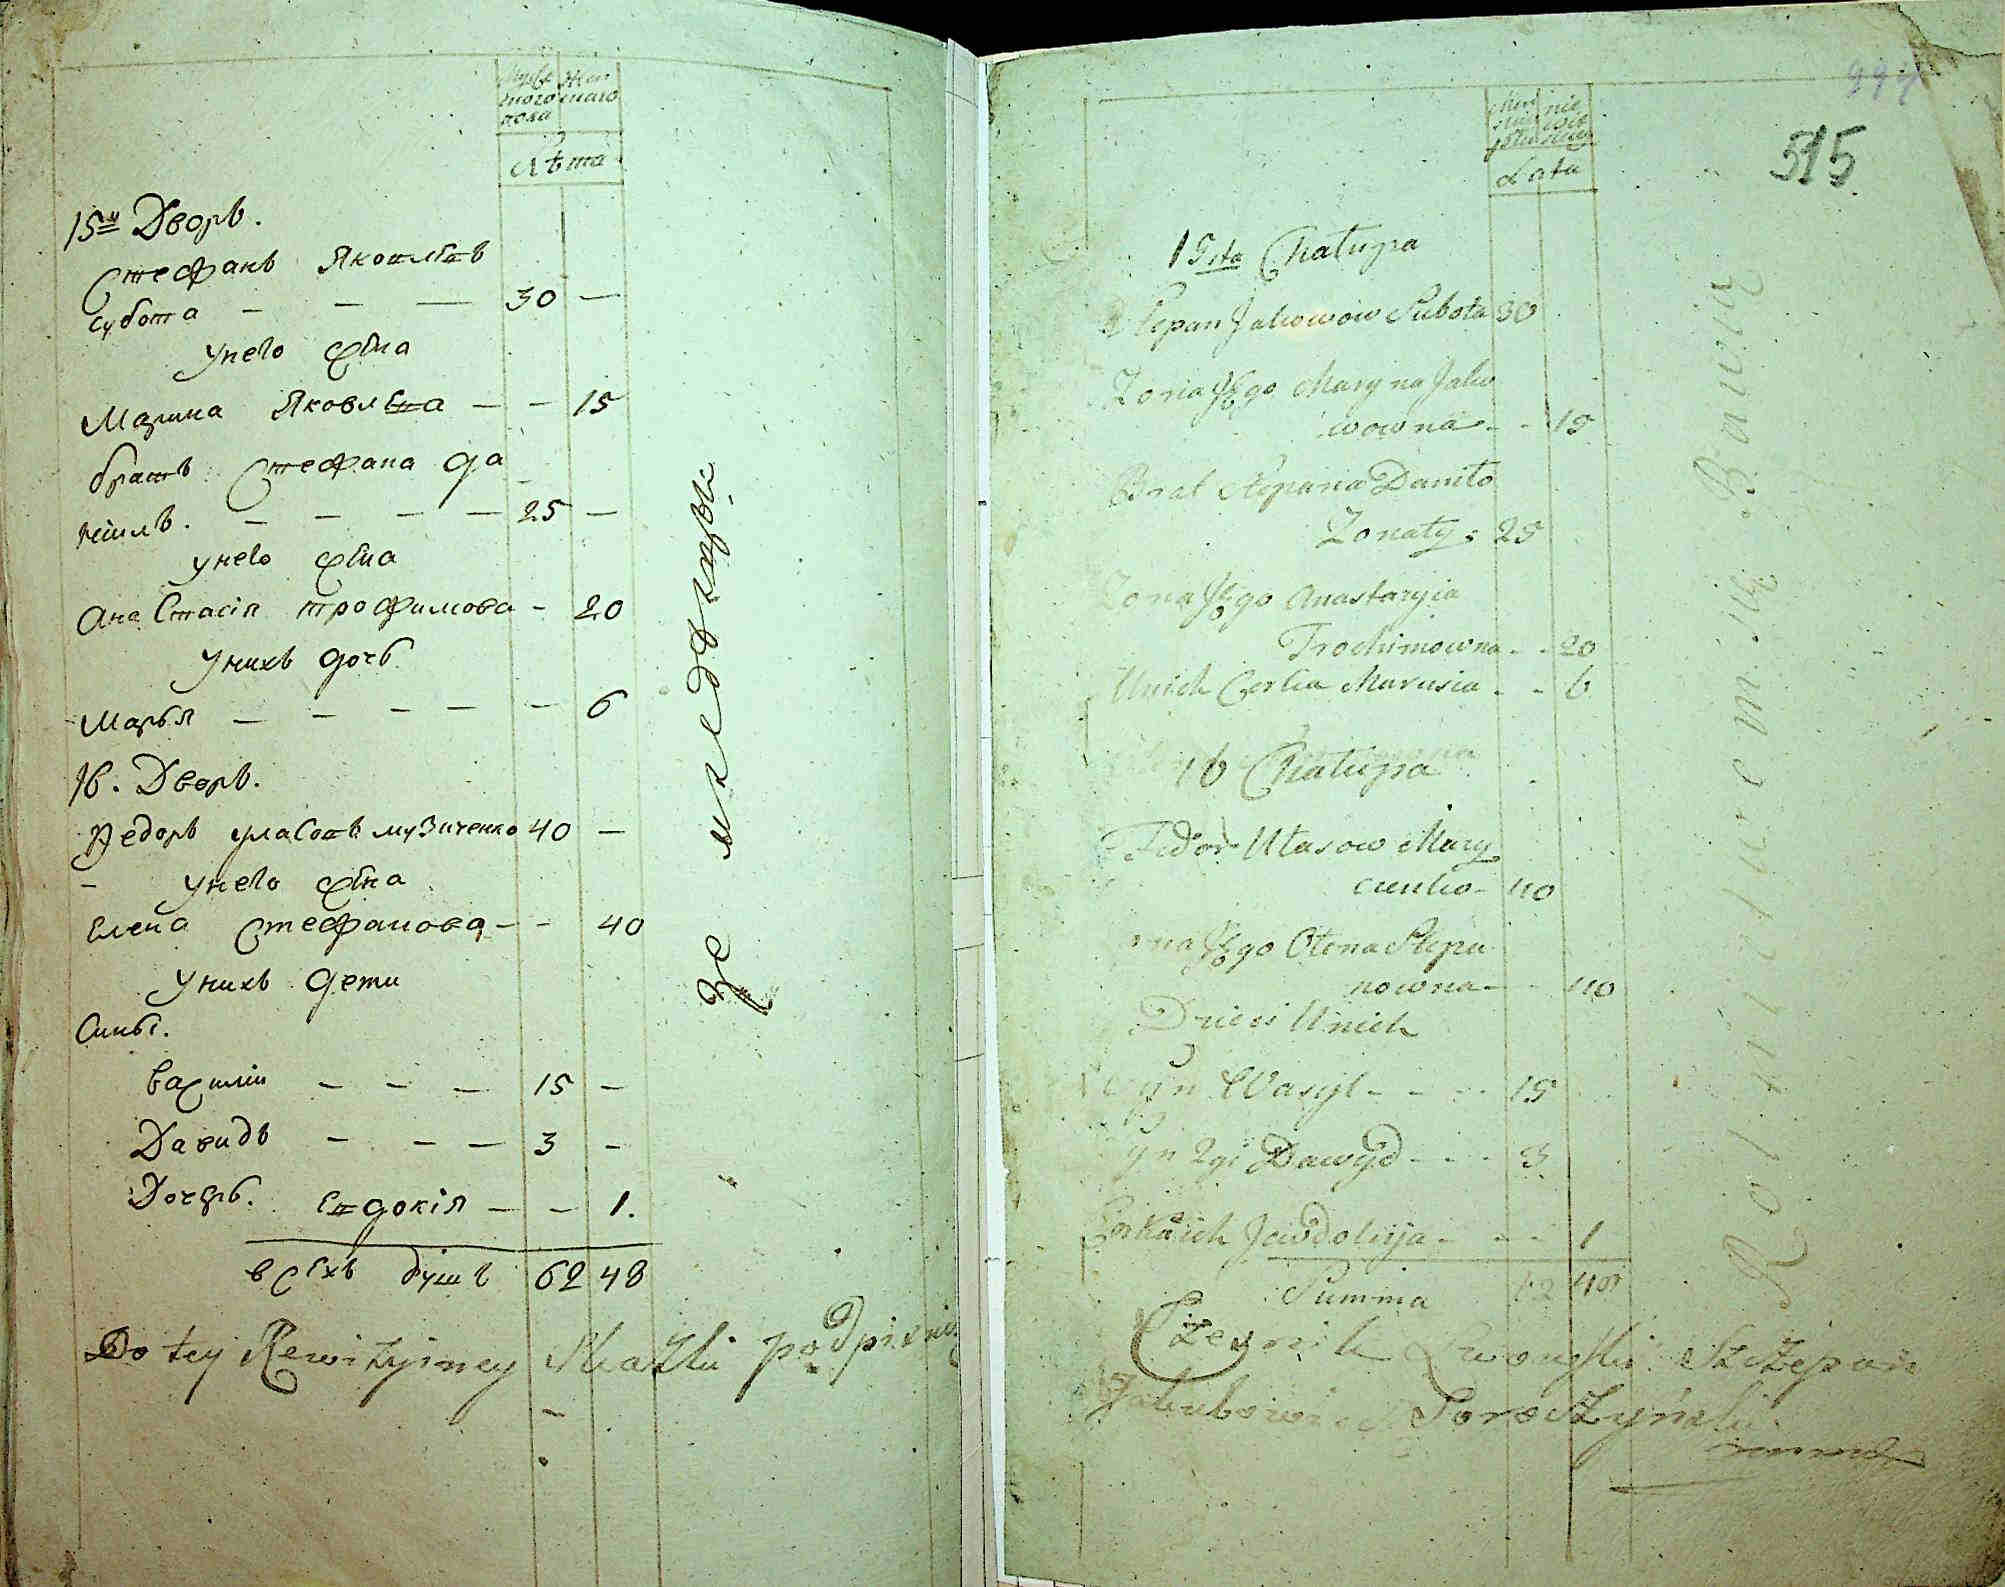 Мужескаго пола
Женскаго
Лѣта
15й Дворъ.
Стефанъ Яковлевъ
субота - - - 30 -
унего жена
Марина Яковлева - - 15
братъ Стефана да
нiилъ. - - - - 25 -
унего жена
Анастасiя трофимова - 20
унихъ дочь
Марья - - - - - 6
16. Дворъ.
Федоръ уласовъ музиченко 40 -
унего жена
Елена Стефанова - - 40
унихъ дети
Сины.
василiи - - - 15 -
Давидъ - - - 3 -
Дочерь. Евдокiя - - 1.
всехъ душъ 62 48
Do tey Rewizyiney Skazki podpisuię
515
Lata
15sta Chałupa
Stepan Jakowow Subota 30
Zona Jego Maryna Jako
wowna - - 15
Brat Stepana Daniło
Zonaty: 25
Zona Jego Anastazyia
Trochimowna - - 20
Unich Corka Marusia - - 6
16 Chałupa
Fedor Ułasow Muzy
czenko - 40
Zona Jego Ołena Stepa
nowna - - 40
Dzieci Unich
Syn Wasyl - - - 15
Syn 2gi Dawyd - - - 3
Corka ich Jewdokija - - - 1
Summa 62 48
Czesnik Szczepan